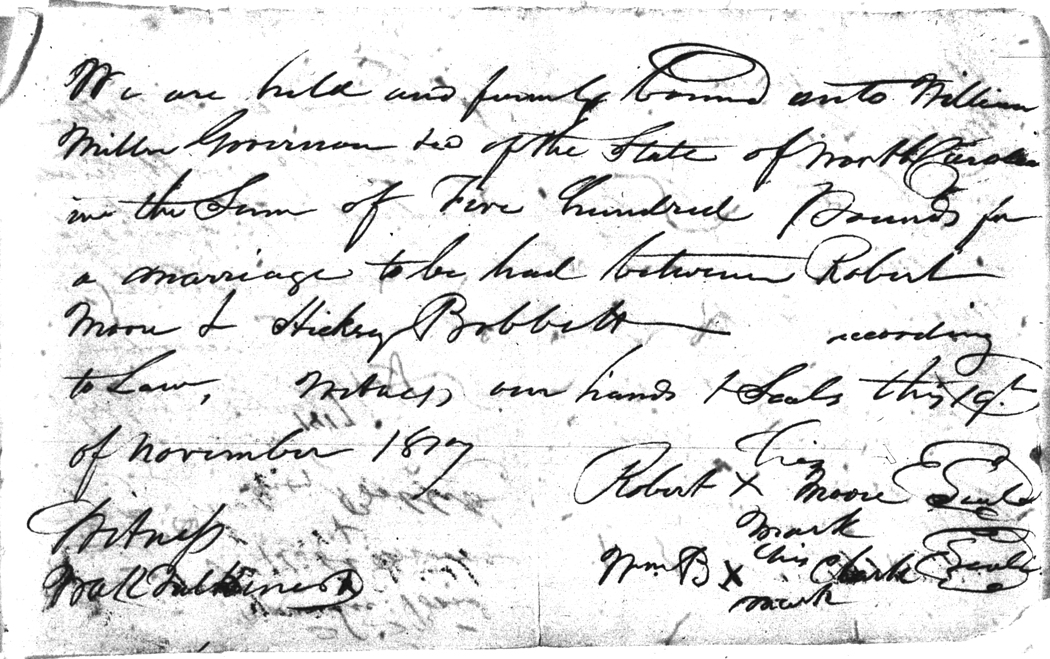 We are held and firmly bound unto William
Miller Governor &c of the State of North Carolina
in the Sum of Five hundred Pounds for
a marriage to be had between Robert
Moore & Hickey Bobbitt according
to Law, Witness our hands & Seals this 19th
of November 1817
his
Robert X Moore Seal
mark
Witness
his
Wm B X Clark Seal
mark